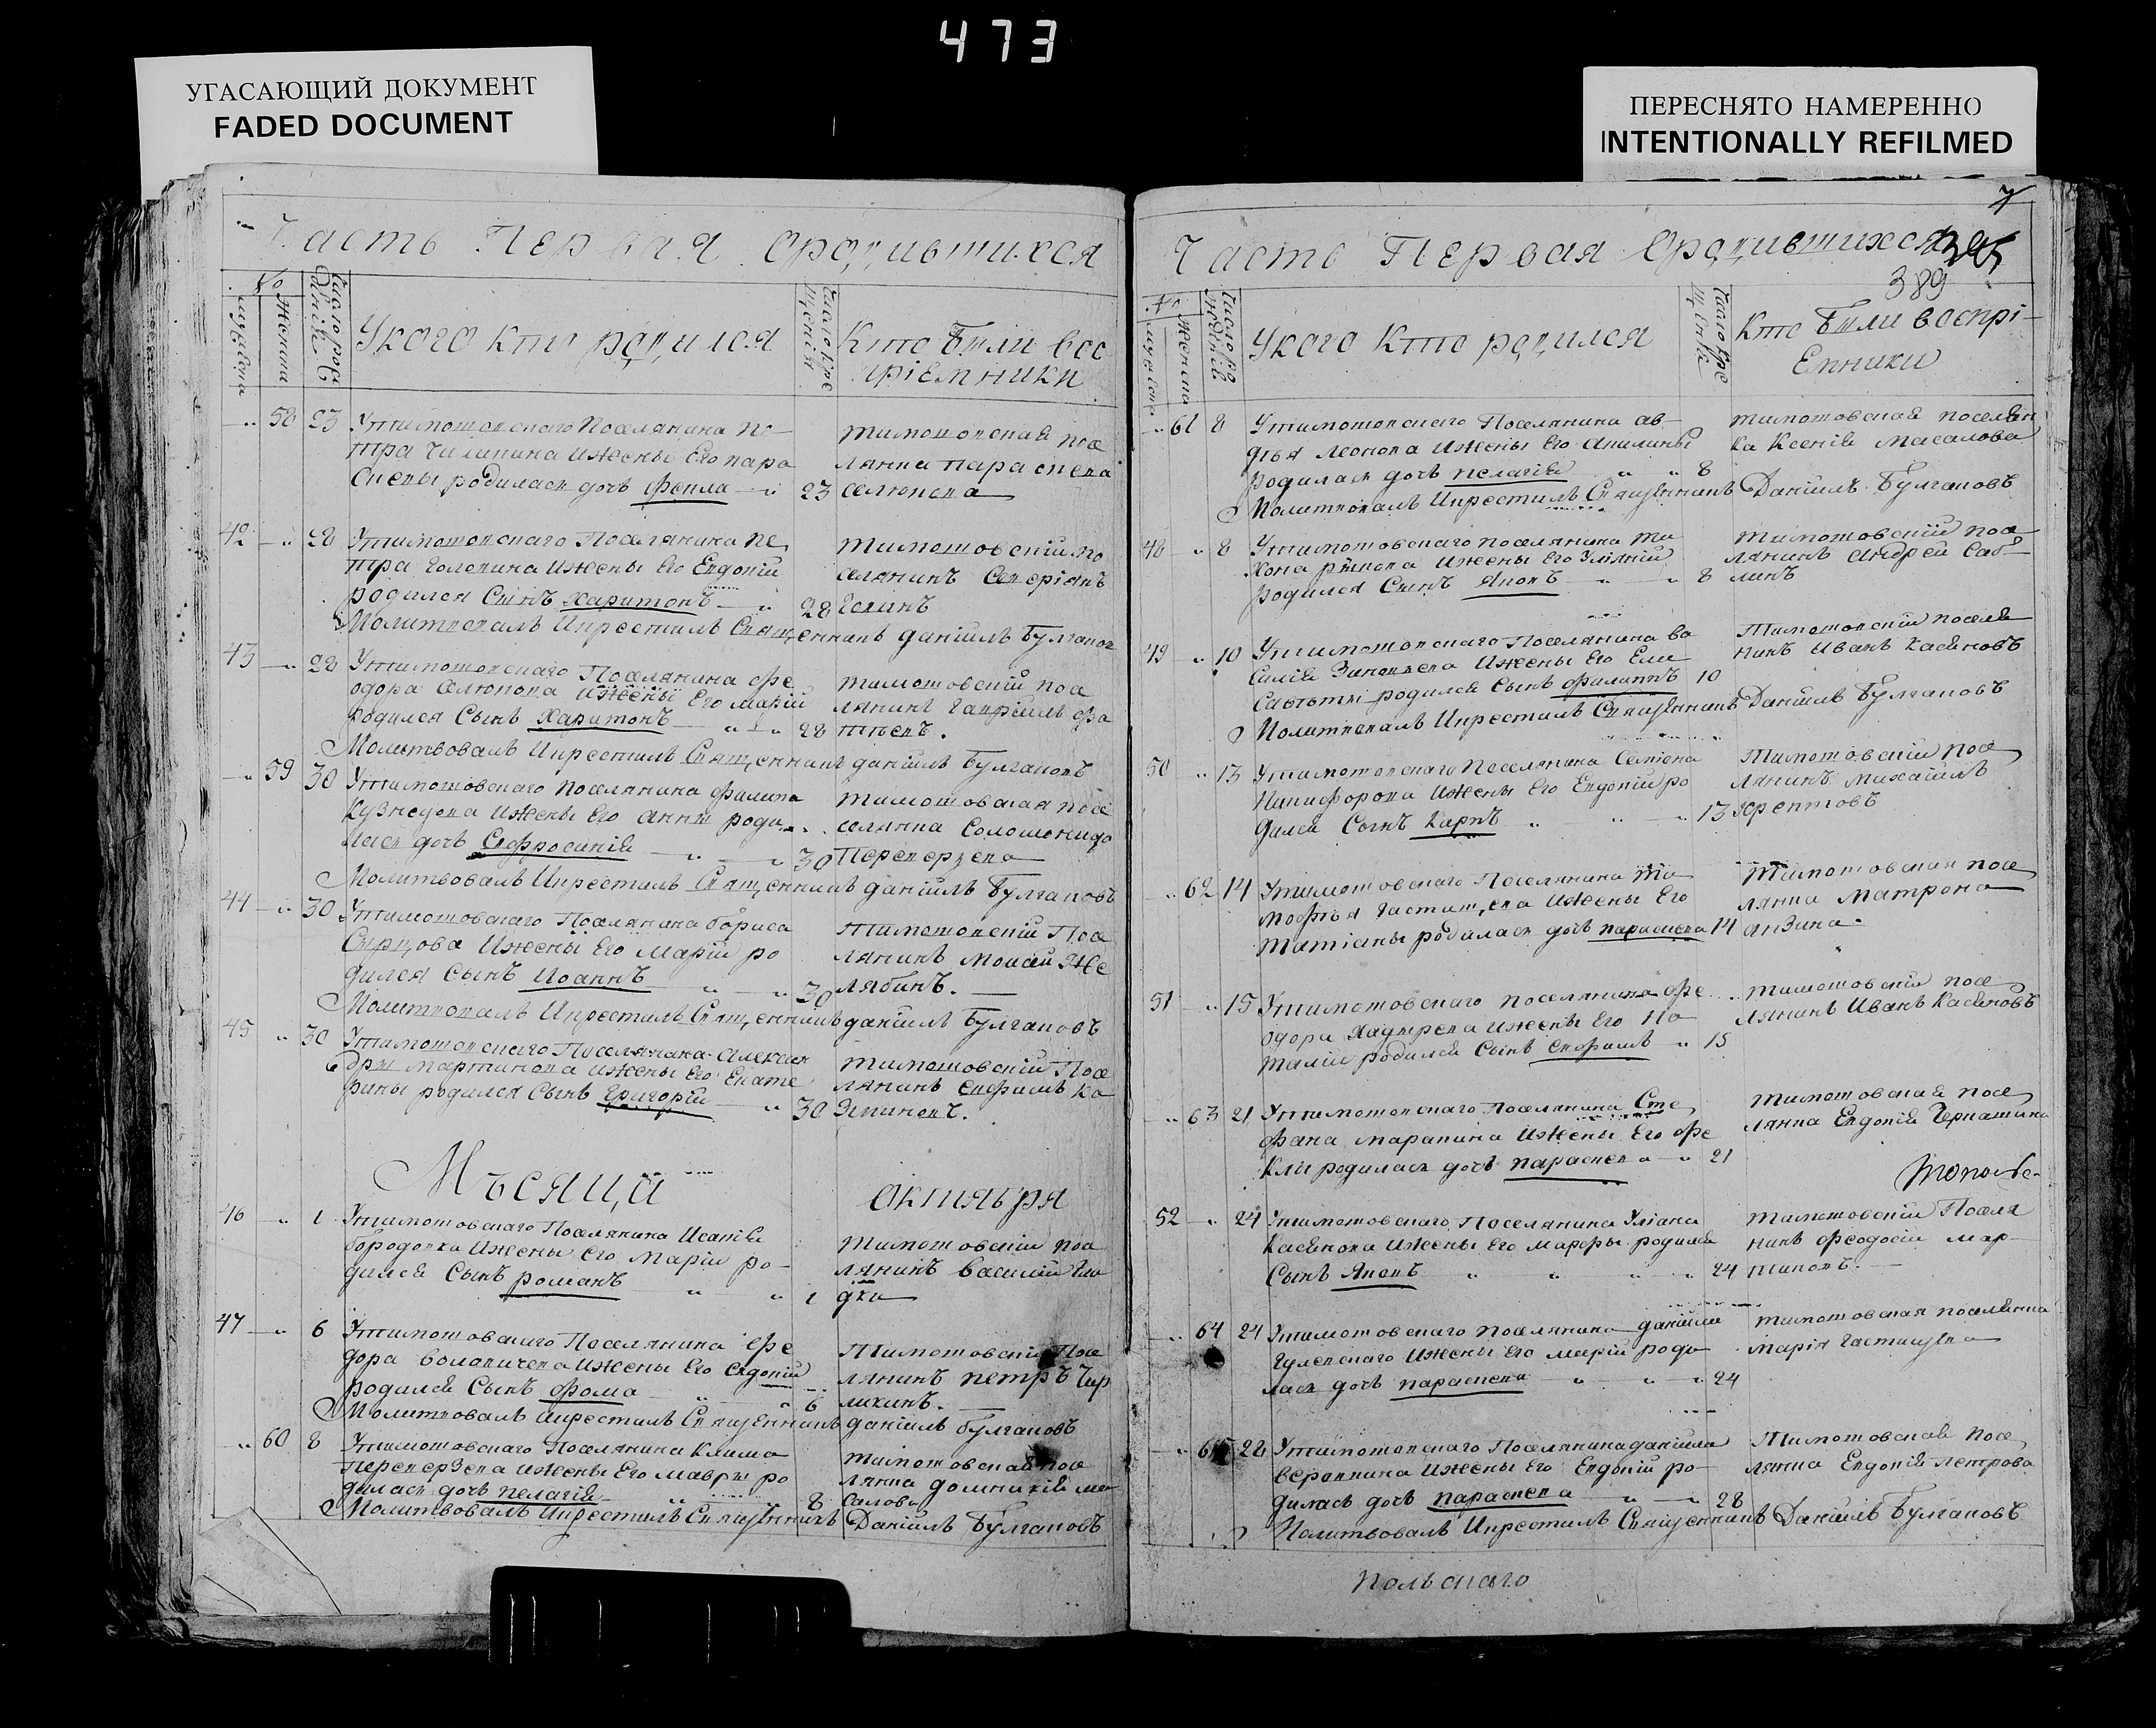 473
УГАСАЮЩИЙ ДОКУМЕНТ
FADED DOCUMENT
ПЕРЕСНЯТО НАМЕРЕННО
INTENTIONALLY REFILMED
Часть Первая ородившихся
№
Укого кто родился
Кто были вос
приемники
58 23 Утимотовскаго Поселянина пе
тра Чиликина ижены Его пара
скевы родилась дочь Фекла 23
тимотовская посе
лянка параскева
селюкова
42 28 Утимотовскаго Поселянина пе
тра Голенина ижены Его Евдокіи
родился Сынъ Харитонъ 28
тимотовскій по
селянинъ Северіянъ
Молитвовалъ Икрестилъ Священникъ Даніилъ Булгаков
43 28 Утимотовскаго Поселянина фе
одора Селюкова ижены Его Маріи
родился Сынъ Харитонъ 28
тимотовскій посе
лянинъ Гавріилъ фа
тѣевъ.
Молитвовалъ Икрестилъ Священникъ Даніилъ Булгаковъ
59 30 Утимотовскаго Поселянина филипа
Кузнецова ижены Его Анны роди
лась дочь Евфросинія 30
тимотовская посе
селянка Соломонида
Переверзева
Молитвовалъ Икрестилъ Священникъ Даніилъ Булгаковъ
44 30 Утимотовскаго Поселянина бориса
Сырцова Ижены Его Маріи ро
дился Сынъ Иоаннъ 30
Тимотовскій Посе
лянинъ Моисей Же
лябинъ.
Молитвовалъ Икрестилъ Священникъ Даніилъ Булгаковъ
45 30 Утимотовскаго Поселянина Алексан
дры Мартинова ижены Его Екате
рины родился Сынъ Григорій 30
тимотовскій Посе
лянинъ Евфимъ Ка
Змтиновъ.
Мѣсяцй октиября
46 1 Утимотовскаго Поселянина Исаія
бородовка Ижены Его Маріи ро-
дился Сынъ романъ 1
тимотовскій посе
лянинъ Василій Гла
дки
47 6 Утимотовскаго Поселянина фе
дора Волавичева ижены Его Евдокіи
родился Сынъ фома 6
Тимотовскій Посе
лянинъ петръ Чир
ликинъ.
Молитвовалъ Икрестилъ Священникъ Даніилъ Булгаковъ
60 8 Утимотовскаго Поселянина Клима
Переверзева ижены Его Мавры ро
дилась дочь пелагія 8
тимотовская посе
лянка домникія ма
салова
Молитвовалъ Икрестилъ Священникъ Даніилъ Булгаковъ
7
Часть Первая Ородившихся
389
№
Укого Кто родился
Кто были воспрі-
Емники
61 8 Утимотовскаго Поселянина ав-
дѣя Леонова ижены Его Акилины
родилась дочь пелагія 8
тимотовская поселян
ка Ксенія Масалова
Молитвовалъ Икрестилъ Священникъ Даніилъ Булгаковъ
48 8 Утимотовскаго поселянина Ти
хона рыкова ижены Его Уліяніи
родился Сынъ Яковъ 8
тимотовскій посе
лянинъ Андрей Саб
линъ
49 10 Утимотовскаго Поселянина ва
силія Зиновьева ижены Его Ели
саветы родился Сынъ филиппъ 10
Тимотовскій поселя
нинъ Иванъ Касяновъ
Молитвовалъ Икрестилъ Священникъ Даніилъ Булгаковъ
50 13 Утимотовскаго Поселянина Семіона
Никифорова ижены Его Евдокіи ро
дился Сынъ Карпъ 13
Тимотовскій посе
лянинъ михаилъ
62 14 Утимотовскаго Поселянина Ти
мофѣя Гастищева ижены Его
Татіаны родилась дочь параскева 14
Тимотовская посе
лянка Матрона
янзина.
51 15 Утимотовскаго поселянина фе
одора Хаустрева ижены Его На
таліи родился Сынъ Евфимъ 15
тимотовскій посе
лянинъ Иванъ Касяновъ
63 21 Утимотовскаго Поселянина Сте
фана маракина ижены Его фе
клы родилась дочь параскева 21
тимотовская посе
лянка Евдокія Чернашина
52 24 Утимотовскаго Поселянина Уліана
Касянова ижены Его марфы родился
Сынъ Яковъ 24
тимотовскій Поселя
нинъ феодосій мар-
тиновъ.
64 24 Утимотовскаго поселянина даніила
Гулевскаго ижены Его маріи роди
лась дочь параскева 24
тимотовская поселянка
Марія Гастищева
65 28 Утимотовскаго Поселянина даніила
веравкина ижены Его Евдокіи ро-
дилась дочь параскева 28
Тимотовская посе
лянка Евдокія петрова
Молитвовалъ Икрестилъ Священникъ Даніилъ Булгаковъ
польскаго